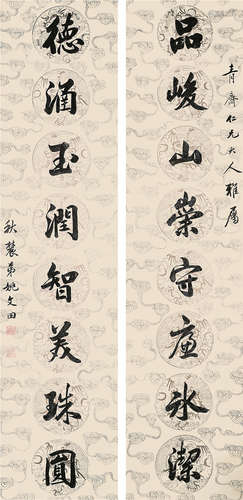 青齋仁兄大人雅屬
品峻山榮守廉冰潔
德酒玉潤智美珠圓
秋農弟姚文田